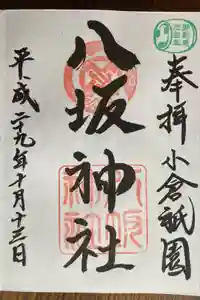 奉拝 小倉祇園
八坂神社
平成二十九年十月十三日